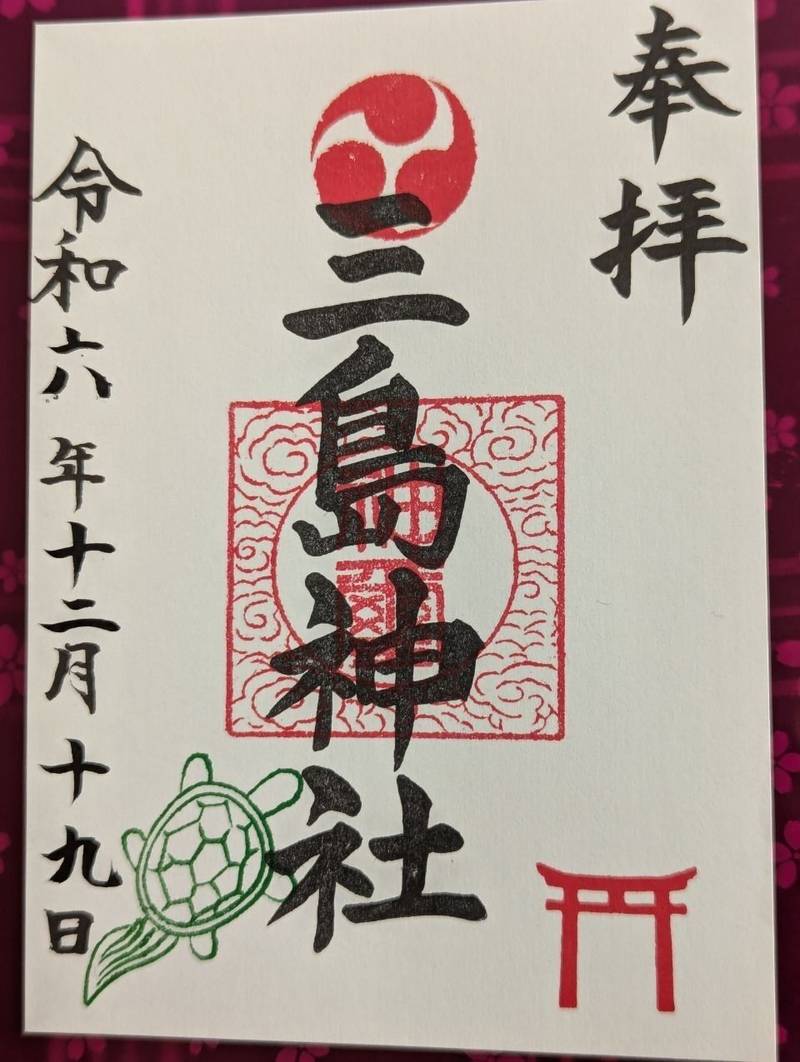 奉拝
三島神社
令和六年十二月十九日